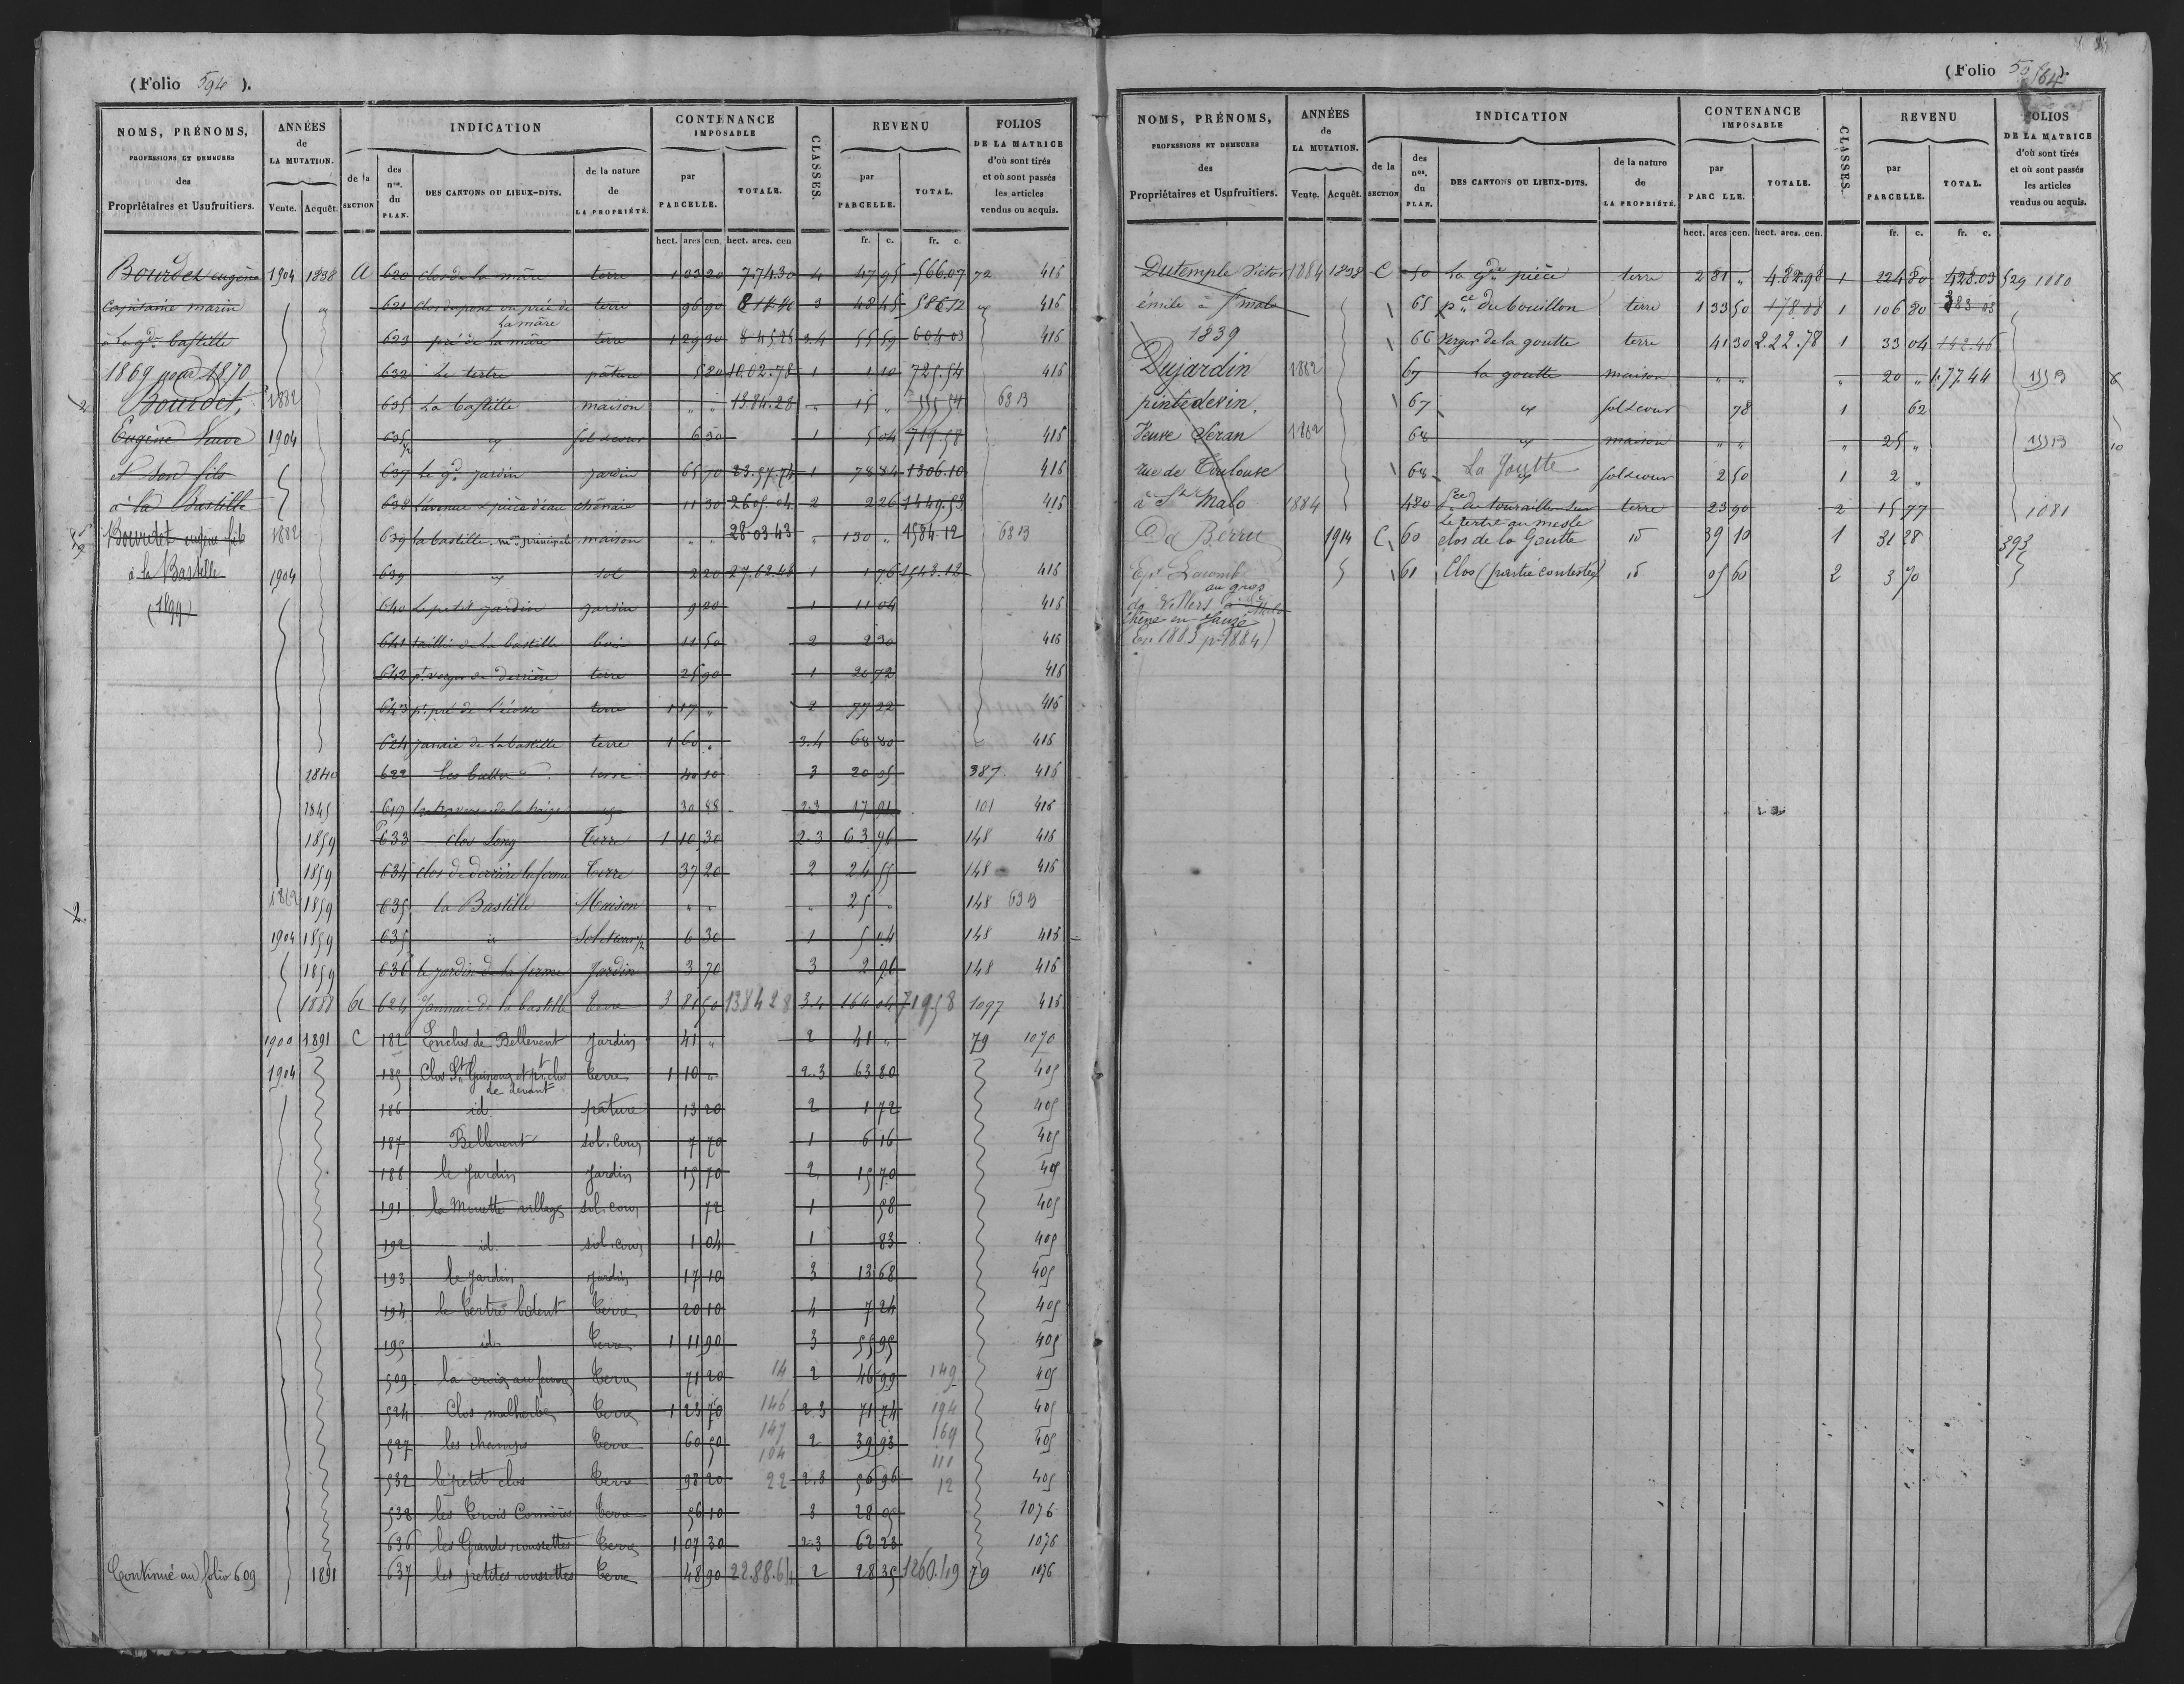 (Folio 594 ).
NOMS, PRÉNOMS,
PROFESSIONS ET DEMEURES
des
Propriétaires et Usufruitiers.
ANNÉES
de
LA MUTATION.
Vente. Acquêt.
INDICATION
de la
SECTION
des
nos.
du
PLAN.
DES CANTONS OU LIEUX-DITS.
de la nature
de
LA PROPRIÉTÉ.
CONTENANCE
IMPOSABLE
par
PARCELLE.
TOTALE.
CLASSES.
REVENU
par
PARCELLE.
TOTAL.
FOLIOS
DE LA MATRICE
d'où sont tirés
et où sont passés
les articles
vendus ou acquis.
hect. ares cen. hect. ares. cen fr. c. fr. c.
Bourdet eugène 1904 1838 A 620 clos de la mare terre 1 03 20 7.74.30 4 47 95 566.07 72 415
capitaine marin 621 terre 96 90 3 48 45 586.12 415
la mare
à la gde bastille 623 pré de la mare terre 1 29 30 8.45.28 3.4 55 59 604.03 415
1869 pour 1870 632 Le tertre pâture 5 80 10.02.78 1 1 10 725.54 415
2 Bourdet, 1882 635 La bastille maison " " 13.84.28 " 15 " 68 B
Eugène Veuve 1904 635 sol & cour 6 30 1 5 04 719.58 415
et son fils 637 Le gd jardin jardin 65 70 23.57.74 1 78 84 1306.10 415
à la Bastille 638 L'avenue & pièce d'eau chênaie 11 30 26.05.04 2 2 26 1449.53 415
Bourdet eugène fils 1882 639 la bastille, mon principale maison " " 28.03.43 " 130 " 1584.12 68 B
à la Bastille 1904 639 sol 2 20 27.62.48 1 1 76 1543.12 415
(1899) 640 Le petit jardin jardin 9 20 1 11 04 415
641 taillis de la bastille bois 11 50 2 2 30 415
642 pt verger de derrière terre 25 90 1 20 72 415
643 terre 1 17 " 2 77 22 415
624 jannaie de la bastille terre 1 60 " 3.4 68 80 415
1840 622 terre 40 10 3 20 05 387 415
1845 619 30 88 2.3 17 91 101 415
1859 633 clos Long Terre 1 10 30 2.3 63 96 148 415
1859 634 clos de derrière la ferme Terre 37 20 2 24 55 148 415
2 1882 1859 635 la Bastille Maison " " " 25 " 148 68 B
1904 1859 635 id Sol & cour 6 30 1 5 04 148 415
1859 636 le jardin de la ferme Jardin 3 70 3 2 96 148 415
1888 A 624 Jannaie de la bastille Terre 3 81 50 13 84 28 3.4 164 04 719.58 1097 415
1900 1891 C 182 Enclos de Bellevent Jardin 41 " 2 41 " 79 1070
1904 185 Clos St Guinoux et pt clos Terre 1 10 " 2.3 63 80 405
de devant
186 id. pâture 13 20 2 1 72 405
187 Bellevent sol. cour 7 70 1 6 16 405
188 le Jardin Jardin 15 70 2 15 70 405
191 la Mouette village sol. cour 72 1 58 405
192 id. sol. cour 1 04 1 83 405
193 le Jardin Jardin 17 10 3 13 68 405
194 le Tertre Terre 20 10 4 7 24 405
195 id. Terre 1 11 90 3 55 95 405
509 Terre 71 20 14 2 46 99 149 405
524 Clos malherbe Terre 1 23 70 146 2.3 71 74 194 405
527 les champs Terre 60 50 147 2 39 93 169 405
104 111
532 le petit clos Terre 98 20 22 2.3 56 96 12 405
538 les Trois Cornières Terre 56 10 3 28 05 1076
636 les Grandes roussettes Terre 1 07 30 2.3 62 23 1076
Continué au folio 609 1891 637 les petites roussettes Terre 48 90 22.88.64 2 28 35 1260.49 79 1076
(Folio ).
NOMS, PRÉNOMS,
PROFESSIONS ET DEMEURES
des
Propriétaires et Usufruitiers.
ANNÉES
de
LA MUTATION.
Vente. Acquêt.
INDICATION
de la
SECTION
des
nos.
du
PLAN.
DES CANTONS OU LIEUX-DITS.
de la nature
de
LA PROPRIÉTÉ.
CONTENANCE
IMPOSABLE
par
PARC LLE.
TOTALE.
CLASSES.
REVENU
par
PARCELLE.
TOTAL.
FOLIOS
DE LA MATRICE
d'où sont tirés
et où sont passés
les articles
vendus ou acquis.
hect. ares cen. hect. ares. cen. fr. c. fr. c.
Dutemple Victor 1884 1838 C 50 La gde pièce terre 2 81 " 4.82.98 1 224 80 428.03 529 1080
émile à St malo 65 pce du bouillon terre 1 33 50 1 106 80
1839 66 verger de la goutte terre 41 30 2.22.78 1 33 04 142.46
Dujardin 1882 67 La goutte maison " " " 20 " 1.77.44
pintedevin, 67 sol & cour 78 1 62
Veuve Seran 1882 68 maison " " " 25 "
rue de Toulouse 68 La Goutte sol & cour 2 50 1 2 "
à St Malo 1884 480 terre 23 90 2 15 77 1081
Le tertre au mesle
De Berru 1914 C 60 clos de la Goutte id 39 10 1 31 28 393
Ep. Lacombe 61 Clos (partie contestée) id 05 60 2 3 70
au gros
de Villers
chêne en Sauzé
(En 1883 pr 1884)